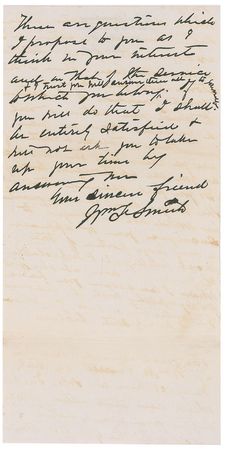 These are questions which
I propose to you as I
think in your interest
and in that of the service
& I trust you will answer them all
to which you belong. If
you will do that I should
be entirely satisfied &
will not ask you to take
up your time by
answering me
Your sincere friend
Wm F Smith